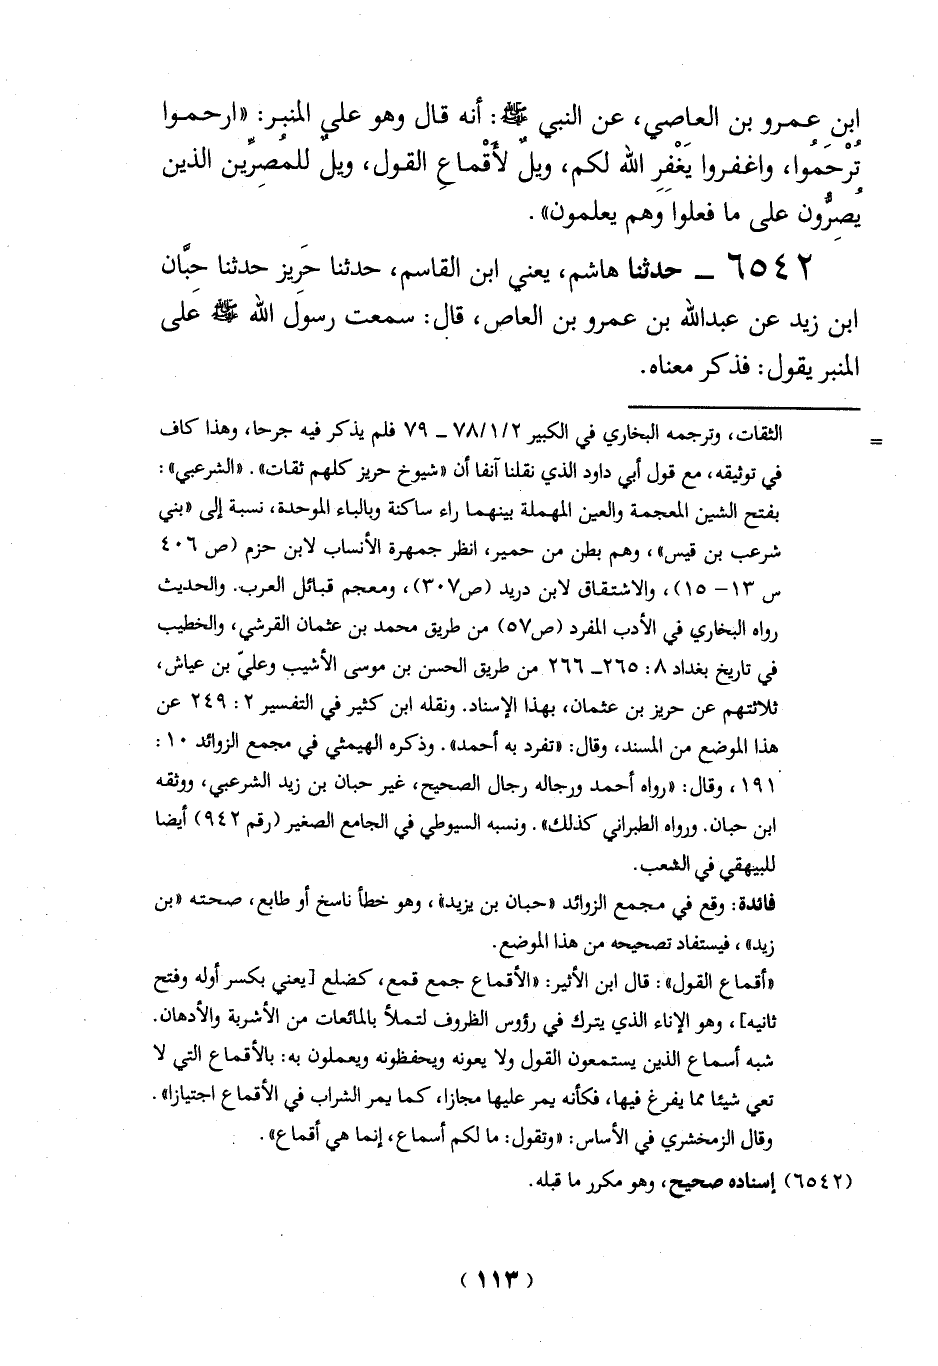 ابن عمرو بن العاصي، عن النبي ﷺ: أنه قال وهو على المنبر: «ارحموا
تُرْحَمُوا، واغفروا يَغْفِرِ الله لكم، ويلٌ لأَقْماعِ القول، ويلٌ للمُصِرِّين الذين
يُصِرُّون على ما فعلوا وهم يعلمون».
٦٥٤٢ ـ حدثنا هاشم، يعني ابن القاسم، حدثنا حَرِيز حدثنا حِبَّان
ابن زيد عن عبدالله بن عمرو بن العاص، قال: سمعت رسول الله ﷺ على
المنبر يقول: فذكر معناه.
= الثقات، وترجمه البخاري في الكبير ٧٨/١/٢ ـ ٧٩ فلم يذكر فيه جرحا، وهذا كاف
في توثيقه، مع قول أبي داود الذي نقلنا آنفا أن «شيوخ حريز كلهم ثقات». «الشرعبي»:
بفتح الشين المعجمة والعين المهملة بينهما راء ساكنة وبالباء الموحدة، نسبة إلى «بني
شرعب بن قيس»، وهم بطن من حمير، انظر جمهرة الأنساب لابن حزم (ص ٤٠٦
س ١٣ – ١٥)، والاشتقاق لابن دريد (ص٣٠٧)، ومعجم قبائل العرب. والحديث
رواه البخاري في الأدب المفرد (ص٥٧) من طريق محمد بن عثمان القرشي، والخطيب
في تاريخ بغداد ٨: ٢٦٥ـ ٢٦٦ من طريق الحسن بن موسى الأشيب وعليّ بن عياش،
ثلاثتهم عن حريز بن عثمان، بهذا الإسناد. ونقله ابن كثير في التفسير ٢: ٢٤٩ عن
هذا الموضع من المسند، وقال: «تفرد به أحمد». وذكره الهيمثي في مجمع الزوائد ١٠:
١٩١، وقال: «رواه أحمد ورجاله رجال الصحيح، غير حبان بن زيد الشرعبي، ووثقه
ابن حبان. ورواه الطبراني كذلك». ونسبه السيوطي في الجامع الصغير (رقم ٩٤٢) أيضا
للبيهقي في الشعب.
فائدة: وقع في مجمع الزوائد «حبان بن يزيد»، وهو خطأ ناسخ أو طابع، صحته «بن
زيد»، فيستفاد تصحيحه من هذا الموضع.
«أقماع القول»: قال ابن الأثير: «الأقماع جمع قمع، كضلع [يعني بكسر أوله وفتح
ثانيه]، وهو الإناء الذي يترك في رؤوس الظروف لتملأ بالمائعات من الأشربة والأدهان.
شبه أسماع الذين يستمعون القول ولا يعونه ويحفظونه ويعملون به: بالأقماع التي لا
تعي شيئا مما يفرغ فيها، فكأنه يمر عليها مجازا، كما يمر الشراب في الأقماع اجتيازا».
وقال الزمخشري في الأساس: «وتقول: ما لكم أسماع، إنما هي أقماع».
(٦٥٤٢) إسناده صحيح، وهو مكرر ما قبله.
(١١٣)